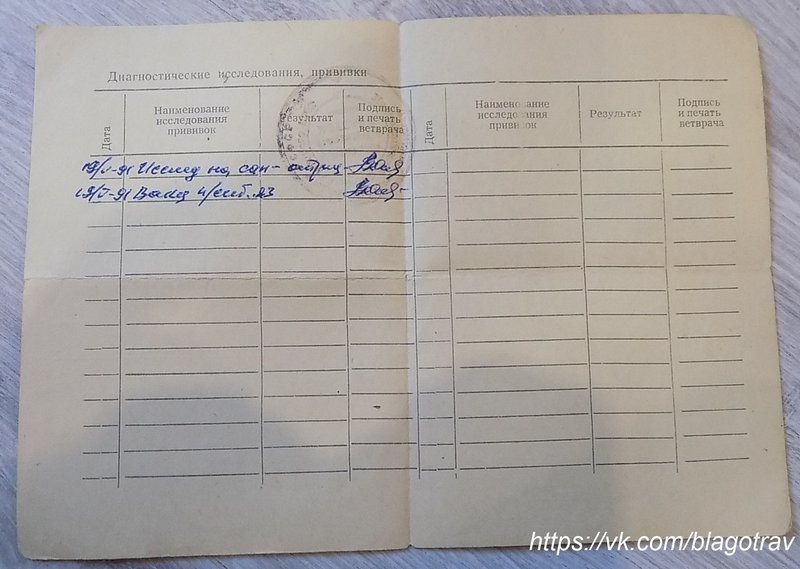 Диагностические исследования, прививки
Дата
Наименование исследования прививок
Результат
Подпись и печать ветврача
Дата
Наименование исследования прививок
Результат
Подпись и печать ветврача
19/V-91 Исслед на сап- отриц
19/V-91 Вакц п/сиб.яз
СССР
https://vk.com/blagotrav